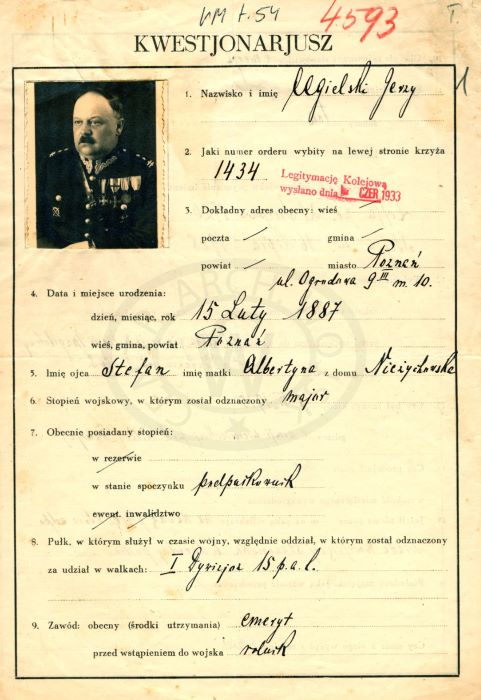 VM t. 54
4593
I.
KWESTJONARJUSZ
1
1. Nazwisko i imię Cegielski Jerzy
2. Jaki numer orderu wybity na lewej stronie krzyża
1434
Legitymację Kolejową
wysłano dnia CZER 1933
3. Dokładny adres obecny: wieś /
poczta / gmina /
powiat / miasto Poznań
ul. Ogrodowa 9 III m. 10.
4. Data i miejsce urodzenia:
dzień, miesiąc, rok 15 Luty 1887
wieś, gmina, powiat Poznań
5. Imię ojca Stefan imię matki Albertyna z domu Nieżychowska
6. Stopień wojskowy, w którym został odznaczony major
7. Obecnie posiadany stopień:
w rezerwie
w stanie spoczynku podpułkownik
ewent. inwalidztwo
8. Pułk, w którym służył w czasie wojny, względnie oddział, w którym został odznaczony
za udział w walkach: I Dywizjon 15 p. a. l.
9. Zawód: obecny (środki utrzymania) emeryt
przed wstąpieniem do wojska rolnik